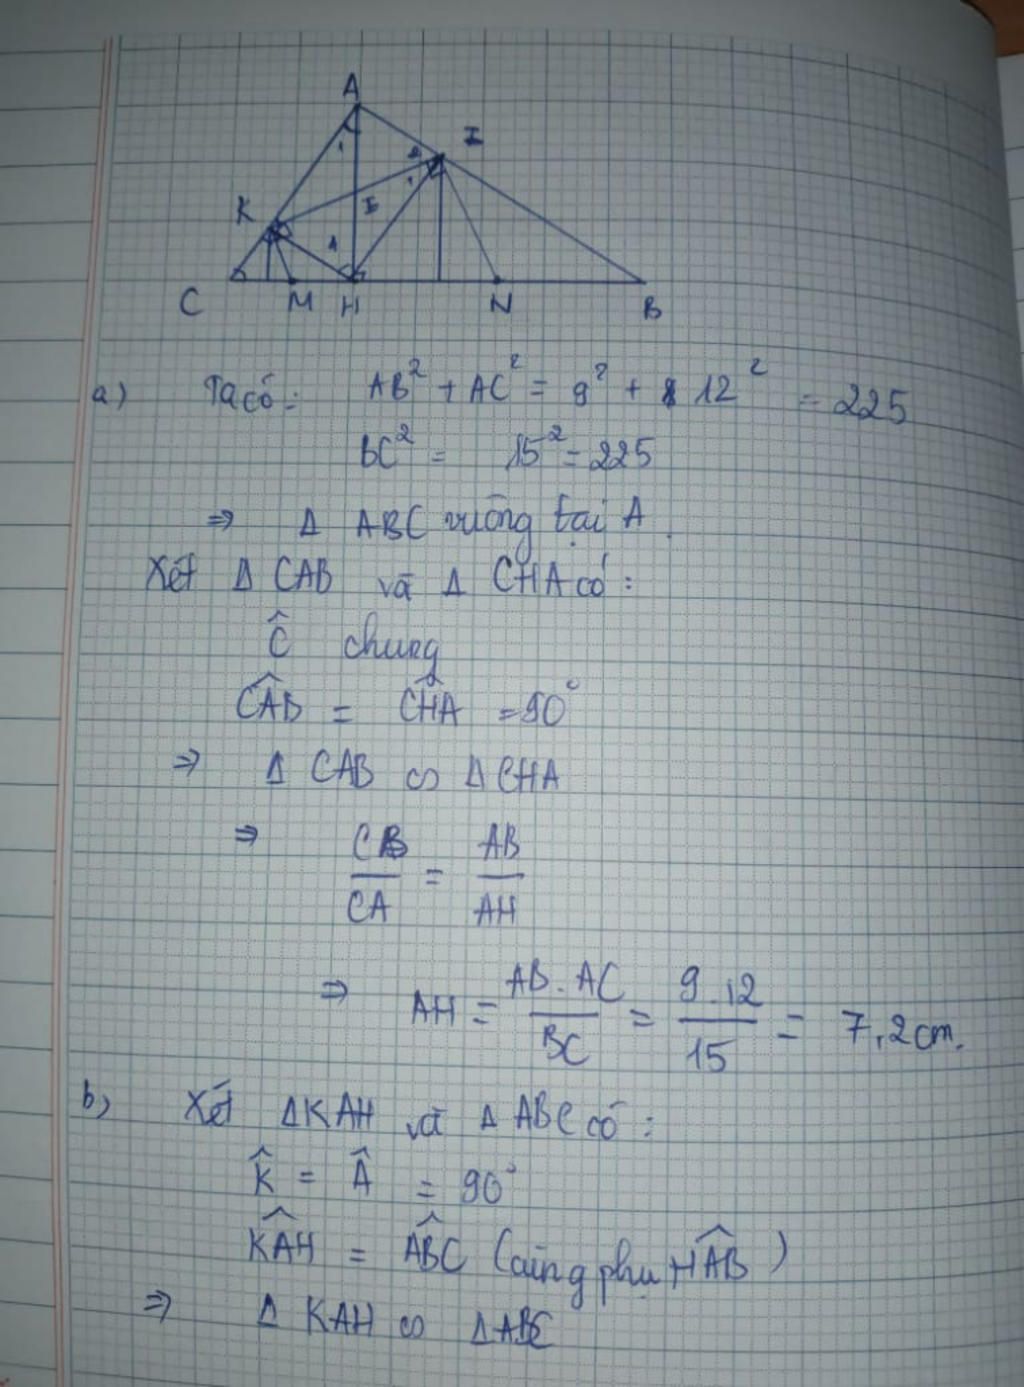 A
I
2
1
1
K
I
1
C
M
H
N
B
a) Ta có: AB² + AC² = 9² + 12² = 225
BC² = 15² = 225
⇒ Δ ABC vuông tại A.
Xét Δ CAB và Δ CHA có:
Ĉ chung
\widehat{CAB} = \widehat{CHA} = 90°
⇒ Δ CAB ∽ Δ CHA
⇒ CB/CA = AB/AH
⇒ AH = AB.AC/BC = 9.12/15 = 7,2cm.
b) Xét ΔKAH và Δ ABC có:
\widehat{K} = \widehat{A} = 90°
\widehat{KAH} = \widehat{ABC} (cùng phụ \widehat{HAB})
⇒ Δ KAH ∽ ΔABC